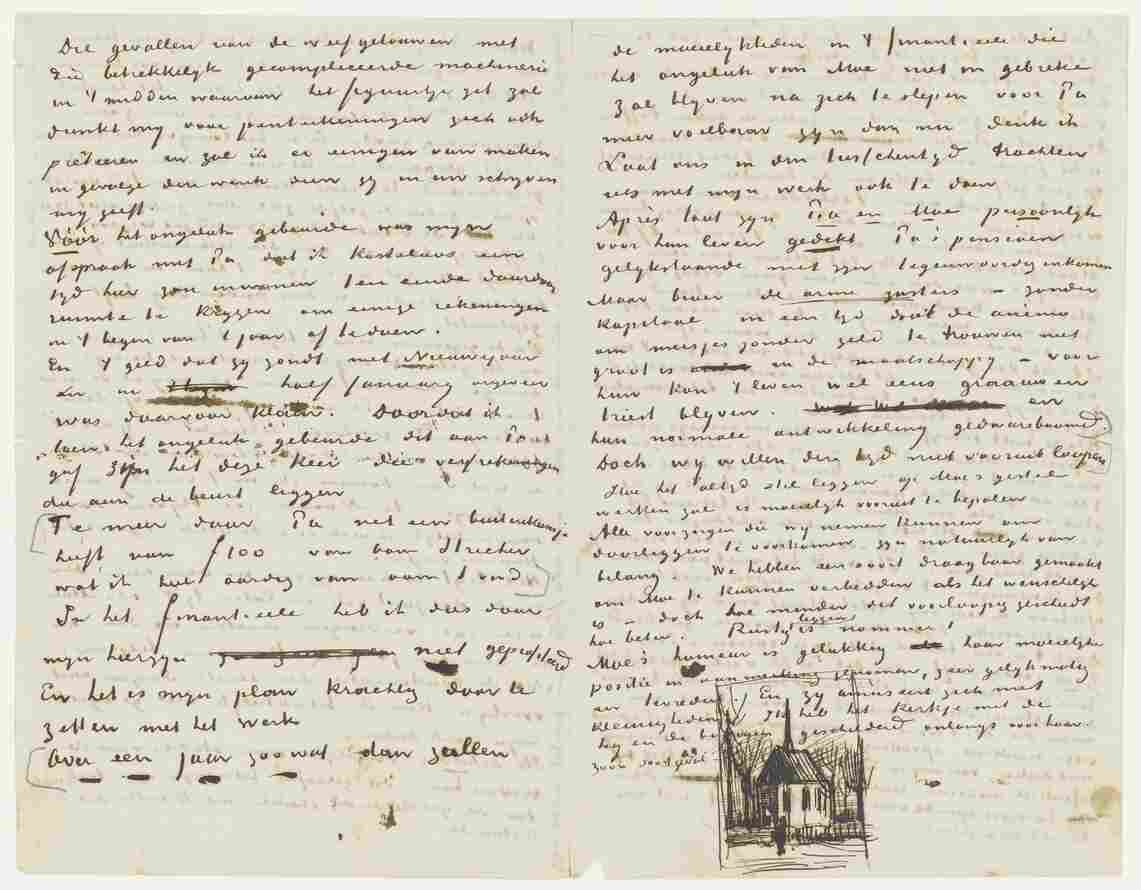 Die gevallen van de weefgetouwen met
die betrekkelijk gecompliceerde machinerie
in 't midden waarvan het figuurtje zit zal
dunkt mij, voor penteekeningen zich ook
prêteeren en zal ik er eenigen van maken
in gevolge den wenk dien gij in uw schrijven
mij geeft.
Vóór het ongeluk gebeurde was mijn
afspraak met Pa dat ik kosteloos een
tijd hier zou inwonen ten einde daardoor
ruimte te krijgen om eenige rekeningen
in 't begin van 't jaar af te doen.
En 't geld dat gij zondt met Nieuwejaar
en in half January
was daarvoor klaar. Doordat ik
toen het ongeluk gebeurde dit aan Pa
gaf zijn het deze keer die
die aan de beurt liggen
Te meer daar Pa net een buitenkansje
heeft van f 100 van oom Stricker
wat ik heel aardig van oom S vond
In het financieele heb ik dus door
mijn hierzijn niet geprofiteerd
En het is mijn plan krachtig door te
zetten met het werk
Over een jaar zoowat dan zullen
de moeielijkheden in 't financieele die
het ongeluk van Moe niet in gebreke
zal blijven na zich te slepen voor Pa
meer voelbaar zijn dan nu denk ik
Laat ons in dien tusschentijd trachten
iets met mijn werk ook te doen
Après tout zijn Pa en Moe persoonlijk
voor hun leven gedekt Pa's pensioen
gelijkstaande met zijn tegenwoordig inkomen
Maar broer de arme zusters – zonder
kapitaal in een tijd dat de animo
om meisjes zonder geld te trouwen niet
groot is in de maatschappij – voor
hun kan 't leven wel eens graauw en
triest blijven. en
hun normale ontwikkeling gedwarsboomd
Doch wij willen den tijd niet vooruit loopen
Hoe het altijd stil liggen op Moe's gestel
werken zal is moeielijk vooruit te bepalen
Alle voorzorgen die wij nemen kunnen om
doorliggen te voorkomen zijn natuurlijk van
belang. We hebben een soort draagbaar gemaakt
om Moe te kunnen verbedden als het wenschelijk
is – doch hoe minder dit voorloopig geschiedt
hoe beter. Rustig liggen is nommer 1
Moe's humeur is gelukkig haar moeielijke
positie in aanmerking genomen, zeer gelijkmatig
en tevreden. En zij amuseert zich met
kleinigheden. Ik heb het kerkje met de
heg en de boomen geschilderd onlangs voor haar.
zoo'n soort geval